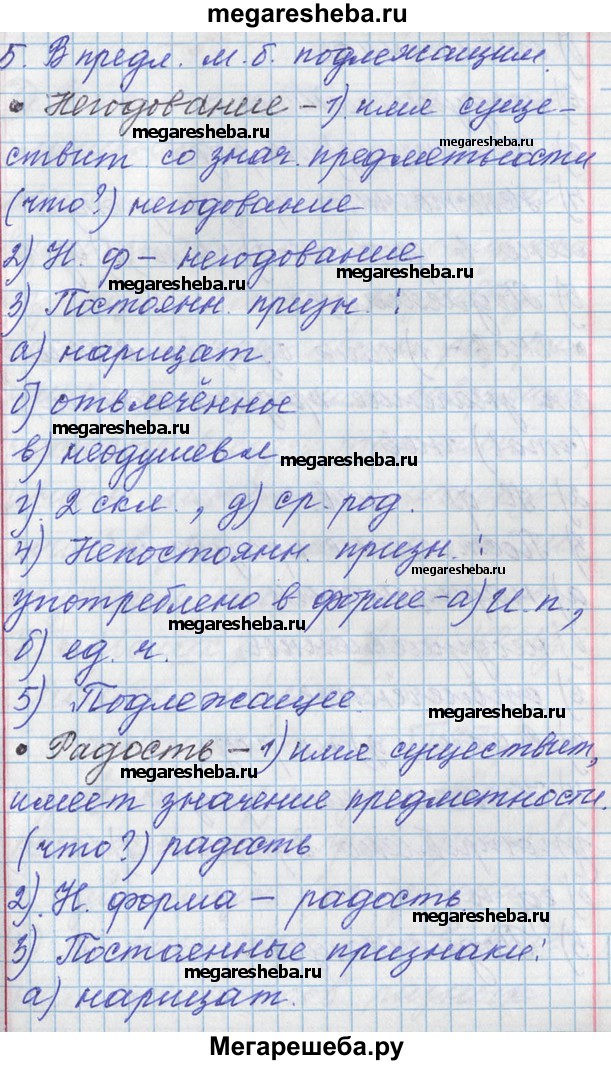 megaresheba.ru
5. В предл. м. б. подлежащим.
• Негодование – 1) имя суще-
megaresheba.ru megaresheba.ru
ствит со знач. предметности
(что?) негодование
2) Н. ф – негодование
megaresheba.ru megaresheba.ru
3) Постоянн. призн. :
а) нарицат.
б) отвлечённое
megaresheba.ru
в) неодушевл
megaresheba.ru
г) 2 скл., д) ср. род.
4) Непостоянн. призн. :
megaresheba.ru
употреблено в форме – а) И. п.,
megaresheba.ru
б) ед. ч.
5) Подлежащее.
megaresheba.ru
• Радость – 1) имя существит,
megaresheba.ru
имеет значение предметности.
(что?) радость
2). Н. форма – радость
megaresheba.ru
3) Постоянные признаки:
megaresheba.ru
а) нарицат.
Мегарешеба.ру